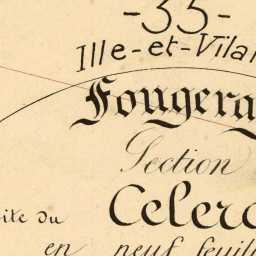 -35-
Ille-et-Vilai
Fougera
Section
ite du Celerc
en neuf feuil